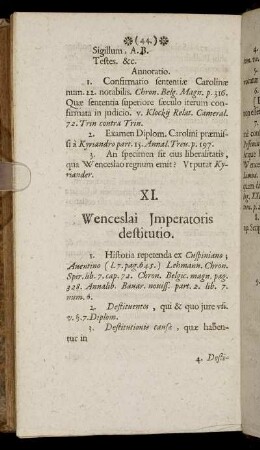 ❊(44.)❊
Sigillum. A. B.
Testes. &c.
Annotatio.
1. Confirmatio sententiæ Carolinæ
num. 22. notabilis. Chron. Belg. Magn. p. 316.
Quæ sententia superiore sæculo iterum con-
firmata in judicio. v. Klockij Relat. Cameral.
72. Trin contra Trin.
2. Examen Diplom. Carolini præmis-
si à Kyriandro part. 15. Annal. Trev. p. 197.
3. An specimen sit ejus liberalitatis,
quâ Wenceslao regnum emit? Ut putat Ky-
riander.
XI.
Wenceslai Imperatoris
destitutio.
1. Historia repetenda ex Cuspiniano;
Auentino (l. 7. pag. 645.) Lehmann. Chron.
Spir. lib. 7. cap. 72. Chron. Belgic. magn. pag.
328. Annalib. Bauar. nouiss. part. 2. lib. 7.
num. 6.
2. Destituentes, qui & quo jure vsi.
v. §. 7. Diplom.
3. Destitutionis causæ, quæ haben-
tur in
4. Desti-